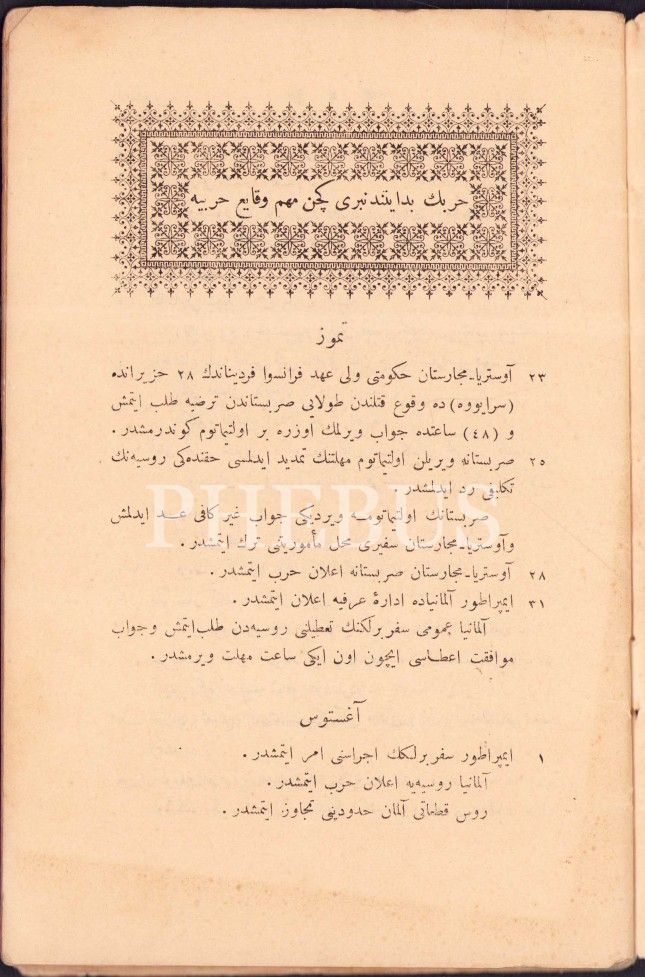 حربك بدایتندنبری كچن مهم وقایع حربیه
تموز
٢٣ آوستریا-مجارستان حكومتی ولی عهد فرانسوا فردیناندك ٢٨ حزیرانده
(سرایووه) ده وقوع قتلندن طولایی صربستاندن ترضیه طلب ایتمش
و (٤٨) ساعتده جواب ویرلمك اوزره بر اولتیماتوم كوندرمشدر .
٢٥ صربستانه ویریلن اولتیماتوم مهلتنك تمدید ایدلمسی حقنده كی روسیه نك
تكلیفی رد ایدلمشدر
صربستانك اولتیماتومه ویردیكی جواب غیر كافی عد ایدلمش
وآوستریا-مجارستان سفیری محل مأموریتی ترك ایتمشدر .
٢٨ آوستریا-مجارستان صربستانه اعلان حرب ایتمشدر .
٣١ ایمپراطور آلمانیاده ادارهٔ عرفیه اعلان ایتمشدر .
آلمانیا عمومی سفربرلكنك تعطیلنی روسیه دن طلب ایتمش وجواب
موافقت اعطاسی ایچون اون ایكی ساعت مهلت ویرمشدر .
آغستوس
١ ایمپراطور سفربرلكك اجراسنی امر ایتمشدر .
آلمانیا روسیه یه اعلان حرب ایتمشدر .
روس قطعاتی آلمان حدودینی تجاوز ایتمشدر .
PHEBUS